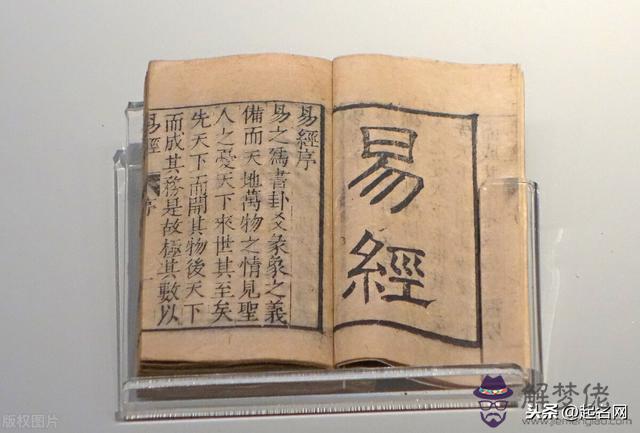 易經
易經序
易之為書卦爻彖象之義
備而天地萬物之情見聖
人之憂天下來世其至矣
先天下而開其物後天下
而成其務是故極其數以
易經 序
版权图片
解梦佬
www.jiemenglao.com
头条@起名网